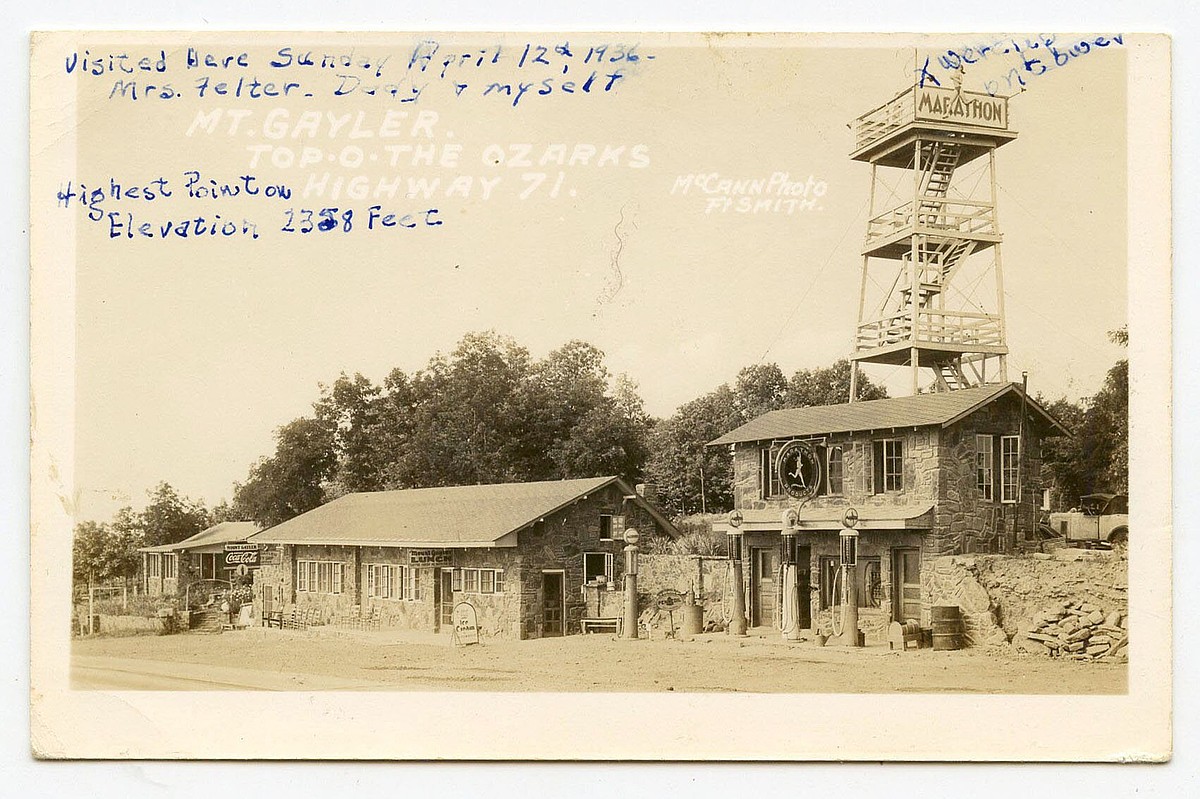 Visited Here Sunday April 12d, 1936-
Mrs. Felter - Dady & myself
X were
on tower
MARATHON
MT. GAYLER.
TOP-O-THE OZARKS
HIGHWAY 71.
McCANN Photo
FT SMITH.
Highest Point on
Elevation 2358 Feet
MOUNT GAYLER
Coca-Cola
Ice
Cream